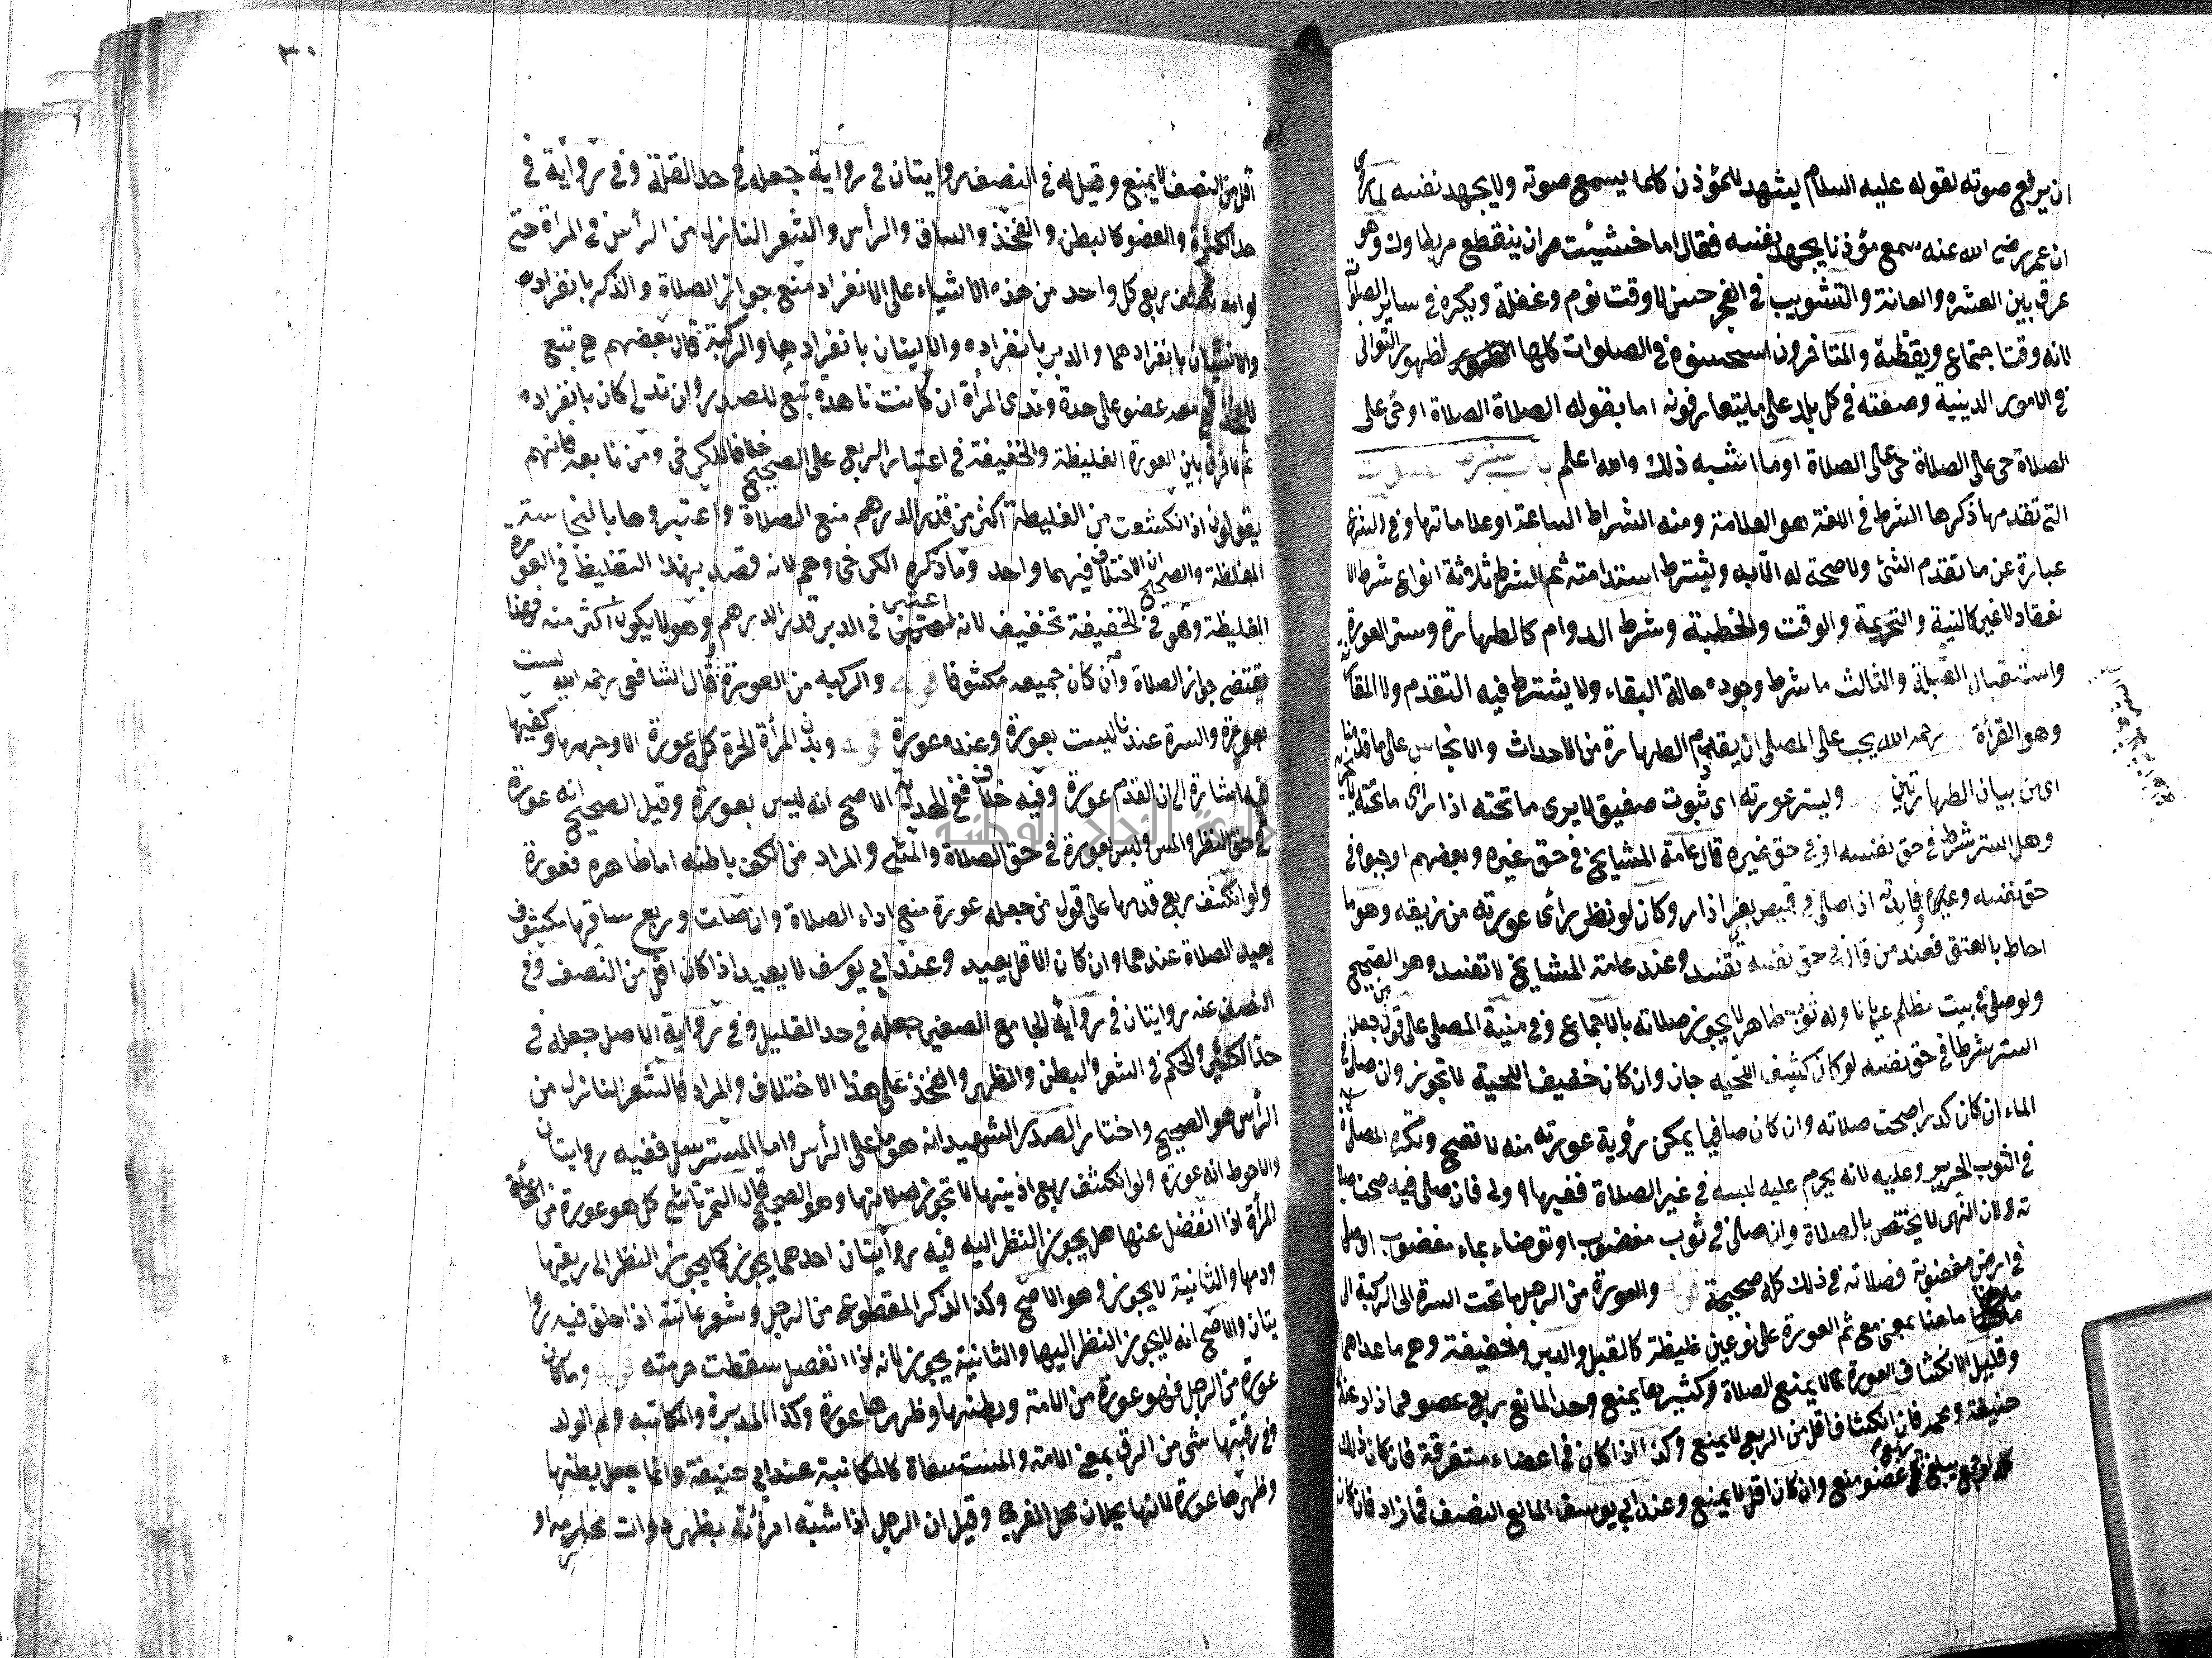 ان يرفع صوته لقوله عليه السلام يشهد للمؤذن كلما يسمع صوته ولا يجهد نفسه لما روى
ان عمر رضى الله عنه سمع مؤذنا يجهد نفسه فقال اما خشيت من ان ينقطع مريطاوك وهو
عرق بين السره والعانة والتثويب في الفجر حسن لا وقت نوم وغفلة ويكره في ساير الصلوات
لانه وقت اجتماع ويقظة والمتاخرون استحسنوه في الصلوات كلها لظهور التوانى
في الامور الدينية وصفته في كل بلد على ما يتعارفونه اما بقوله الصلاة الصلاة او حى على
الصلاة حى على الصلاة حى على الصلاة اوما اشبه ذلك والله اعلم باب شروط
التى تقدمها ذكرها الشرط في اللغة هو العلامة ومنه اشراط الساعة اى علاماتها وفي الشرع
عبارة عن ما تقدم الشئ ولا صحة له الا به ويشترط استدامته ثم الشرط ثلاثة انواع شرط الا
نعقاد لا غير كالنية والتحريمة والوقت والخطبة وشرط الدوام كالطهارة وستر العورة
واستقبال القبلة والثالث ما شرط وجوده حالة البقاء ولا يشترط فيه التقدم ولا المقا
وهو القرأة رحمه الله يجب على المصلى ان يقدم الطهارة من الاحداث والانجاس على ما قدمنا
اى من بيان الطهارتين ويستر عورته اى بثوب صفيق لا يرى ما تحته اذا راى ما تحته لا
وهل الستر شرط في حق نفسه او في حق غيره قال عامة المشايخ في حق غيره وبعضهم اوجبوه في
حق نفسه وغيره وفايدته اذا صلى في قميص بغير ازار وكان لو نظر رأى عورته من زيقه وهو ما
احاط بالعنق فعند من قال في حق نفسه تفسد وعند عامة المشايخ لا تفسد وهو الصحيح
ولو صلى في بيت مظلم عريانا وله ثوب طاهر لا يجوز صلاته بالاجماع وفي منية المصلى على قول من جعل
الستر شرطا في حق نفسه لو كان كثيف اللحية جاز وان كان خفيف اللحية لا تجوز وان صلى في
الماء ان كان كدرا صحت صلاته وان كان صافيا يمكن رؤية عورته منه لا تصح وتكره الصلاة
في الثوب الحرير وعليه لانه يحرم عليه لبسه في غير الصلاة ففيها اولى فان صلى فيه صحت صلا
ته لان النهى لا يختص بالصلاة وان صلى في ثوب مغصوب او توضاء بماء مغصوب او صلى
في ارض مغصوبة فصلاته في ذلك كله صحيحة والعورة من الرجل ما تحت السرة الى الركبة الى
ههنا بمعنى مع ثم العورة على نوعين غليظة كالقبل والدبر وخفيفة وهي ما عداهما
وقليل الانكشاف في العورة لا يمنع الصلاة وكثيرها يمنع وحد المانع ربع عضو فما زاد عند
حنيفة ومحمد فان انكشاف اقل من الربع لا يمنع وكذا اذا كان في اعضاء متفرقة فان كان ذلك
يبلغ ربع عضو منع وان كان اقل لا يمنع وعند ابي يوسف المانع النصف فما زاد فان كان
٣٠
اقل من النصف لا يمنع وقيل له في النصف روايتان في رواية جعله في حد القلة وفي رواية في
حد الكثرة والعضو كالبطن والفخذ والساق والرأس والشعر النازل من الرأس في المراة حتى
لو انكشف ربع كل واحد من هذه الاشياء على الانفراد منع جواز الصلاة والذكر بانفراده
والانثيان بانفرادهما والدبر بانفراده والاليتان بانفرادها والركبة قال بعضهم هي تبع
للفخذ عضو على حدة وثدى المرأة ان كانت ناهدة تبع للصدر وان تدلى كان بانفراده
ثم لا فرق بين العورة الغليظة والخفيفة في اعتبار الربع على الصحيح خلافا للكرخى ومن تابعه فانهم
يقولون اذا انكشفت من الغليظة اكثر من قدر الدرهم منع الصلاة واعتبروها بالنجاسة
المغلظة والصحيح ان الاختلاف فيهما واحد وما ذكره الكرخى وهم لانه قصد بهذا التغليظ في العورة
الغليظة وهو في الخفيفة تخفيف لانه اعتبر في الدبر قدر الدرهم وهو لا يكون اكثر منه فهذا
يقتضى جواز الصلاة وان كان جميعه مكشوفا قوله والركبة من العورة وقال الشافعى رحمه الله ليست
بعورة والسرة عندنا ليست بعورة وعنده عورة قوله وبدن المرأة الحرة كله عورة الا وجهها وكفيها
فيه اشارة الى ان القدم عورة وفيه خلاف ففي الهداية الاصح انه ليس بعورة وقيل الصحيح انه عورة
في حق النظر والمس وليس بعورة في حق الصلاة والمشى والمراد من الكف باطنه اما ظاهره فعورة
ولو انكشف ربع قدمها على قول من جعله عورة منع اداء الصلاة وان صلت وربع ساقها مكشوف
يعيد الصلاة عندهما وان كان الاقل لا يعيد وعند ابي يوسف لا يعيد اذا كان اقل من النصف وفي
النصف عنه روايتان في رواية الجامع الصغير جعله في حد القليل وفي رواية الاصل جعله في
حد الكثير والحكم في الشعر والبطن والظهر والفخذ على هذا الاختلاف والمراد بالشعر النازل من
الرأس هو الصحيح واختار الصدر الشهيد انه هو ما على الرأس واما المسترسل ففيه روايتان
والاحوط انه عورة ولو انكشف ربع اذنيها لا تجوز صلاتها وهو الصحيح قال التمرتاشى كل هو عورة من المرأة
المرأة اذا انفصل عنها هل يجوز النظر اليه فيه روايتان احدهما يجوز كما يجوز النظر الى ريقها
ودمها والثانية لا يجوز وهو الاصح وكذا الذكر المقطوع من الرجل وشعر عانته اذا حلق فيه روا
يتان والاصح انه لا يجوز النظر اليها والثانية يجوز لانه اذا انفصل سقطت حرمته قوله وما كان
عورة من الرجل فهو عورة من الامة وبطنها وظهرها عورة وكذا المدبرة والمكاتبة وام الولد
في رقبتها شئ من الرق بمعنى الامة والمستسعاة كالمكاتبة عند ابي حنيفة وانما جعل بطنها
وظهرها عورة لانها يحلان محل الفرج وقيل ان الرجل اذا شبه امرأته بظهر ذوات محارمه او